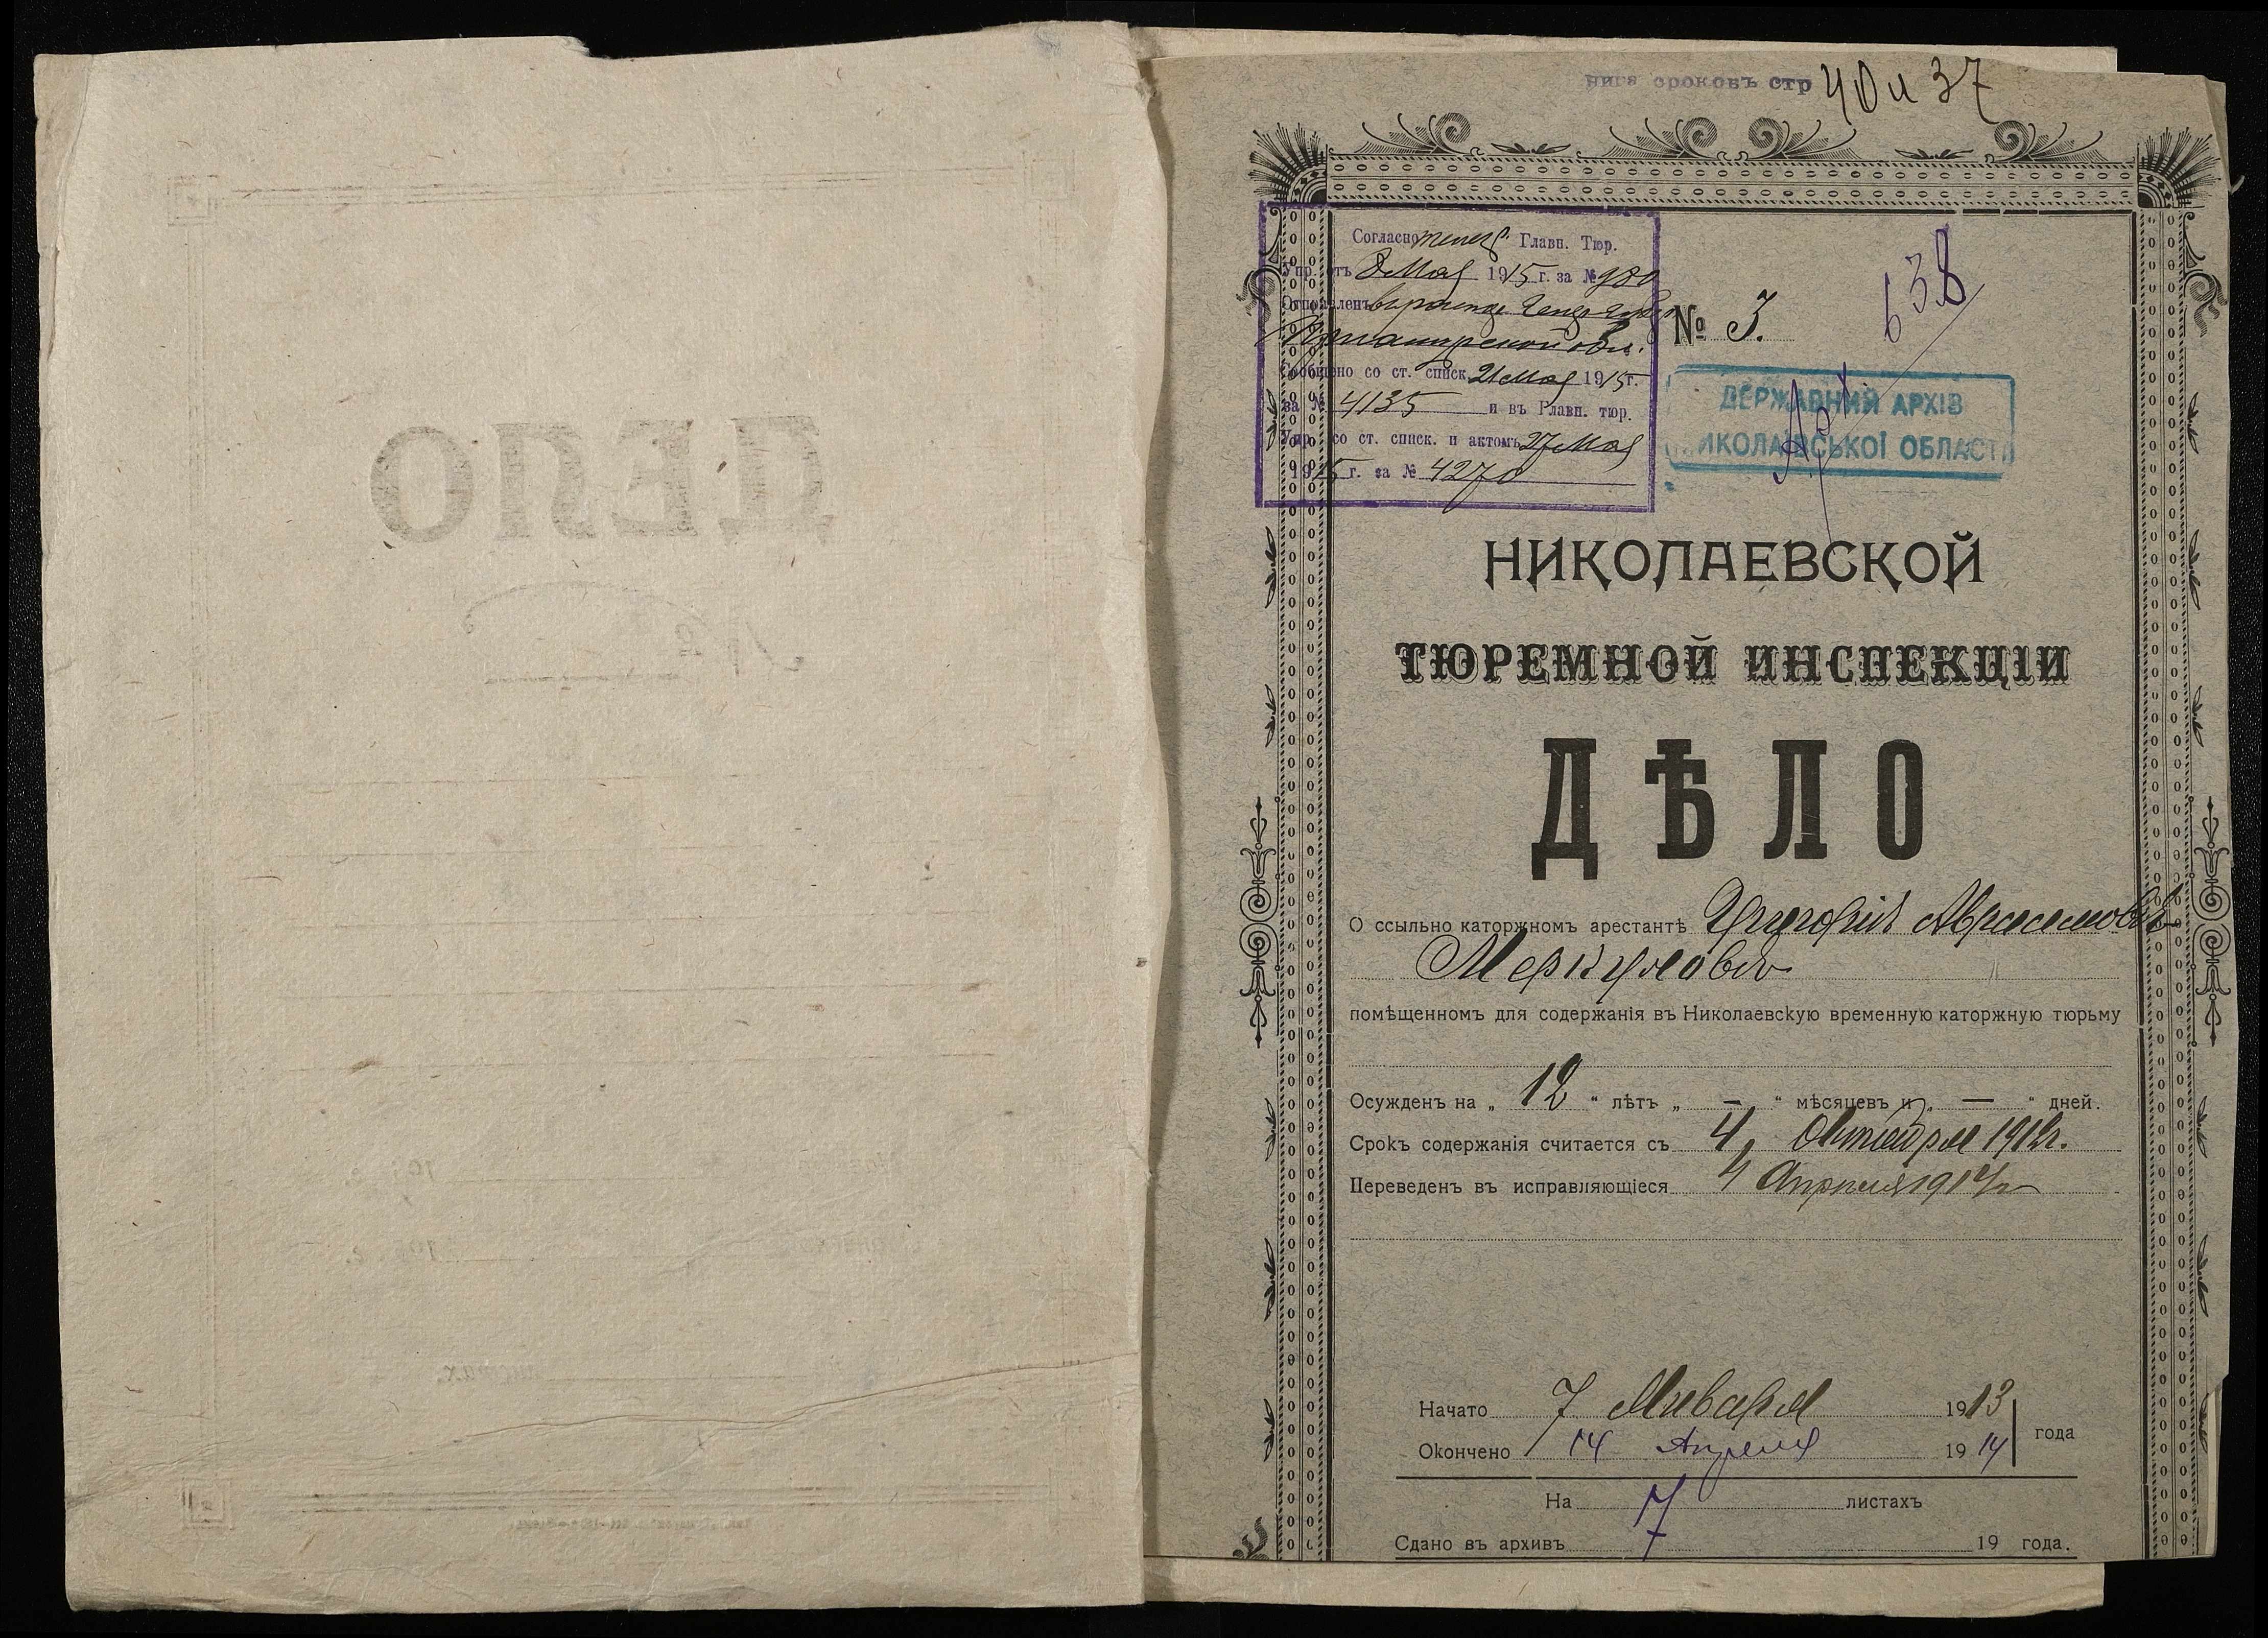 ДЕЛО
№
нига сроковъ стр 40 и 37
Согласно телегр. Главн. Тюр.
Упр. отъ 8 Мая 1915 г. за № 980
Отправленъ
обл.
Сообщено со ст. списк. 21 Мая 1915 г.
за № 4135 и въ Главн. тюр.
Упр. со ст. списк. и актомъ 27 Мая
1915 г. за № 4270
№ 3.
638
Арх
ДЕРЖАВНИЙ АРХІВ
ИКОЛАЇВСЬКОЇ ОБЛАСТІ
НИКОЛАЕВСКОЙ
ТЮРЕМНОЙ ИНСПЕКЦІИ
ДѢЛО
О ссыльно каторжномъ арестантѣ Григоріѣ Абрамовѣ
Меркуловѣ
помѣщенномъ для содержанія въ Николаевскую временную каторжную тюрьму
Осужденъ на „ 12 “ лѣтъ „ — “ мѣсяцевъ и „ — “ дней.
Срокъ содержанія считается съ 4 Октября 1912 г.
Переведенъ въ исправляющіеся 4 Апрѣля 1914 г
Начато 7 Января 1913
года
Окончено 14 Апреля 1914
На 7 листахъ
Сдано въ архивъ 19 года.